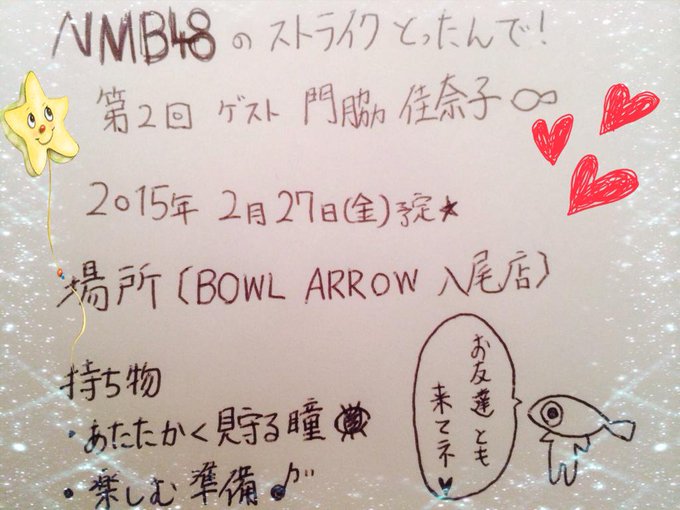 NMB48のストライクとったんで!
第2回 ゲスト 門脇 佳奈子∞
2015年 2月27日(金)予定★
場所〔BOWL ARROW 八尾店〕
持ち物
・あたたかく見守る瞳
・楽しむ準備♪
お友達とも
来てネ♥